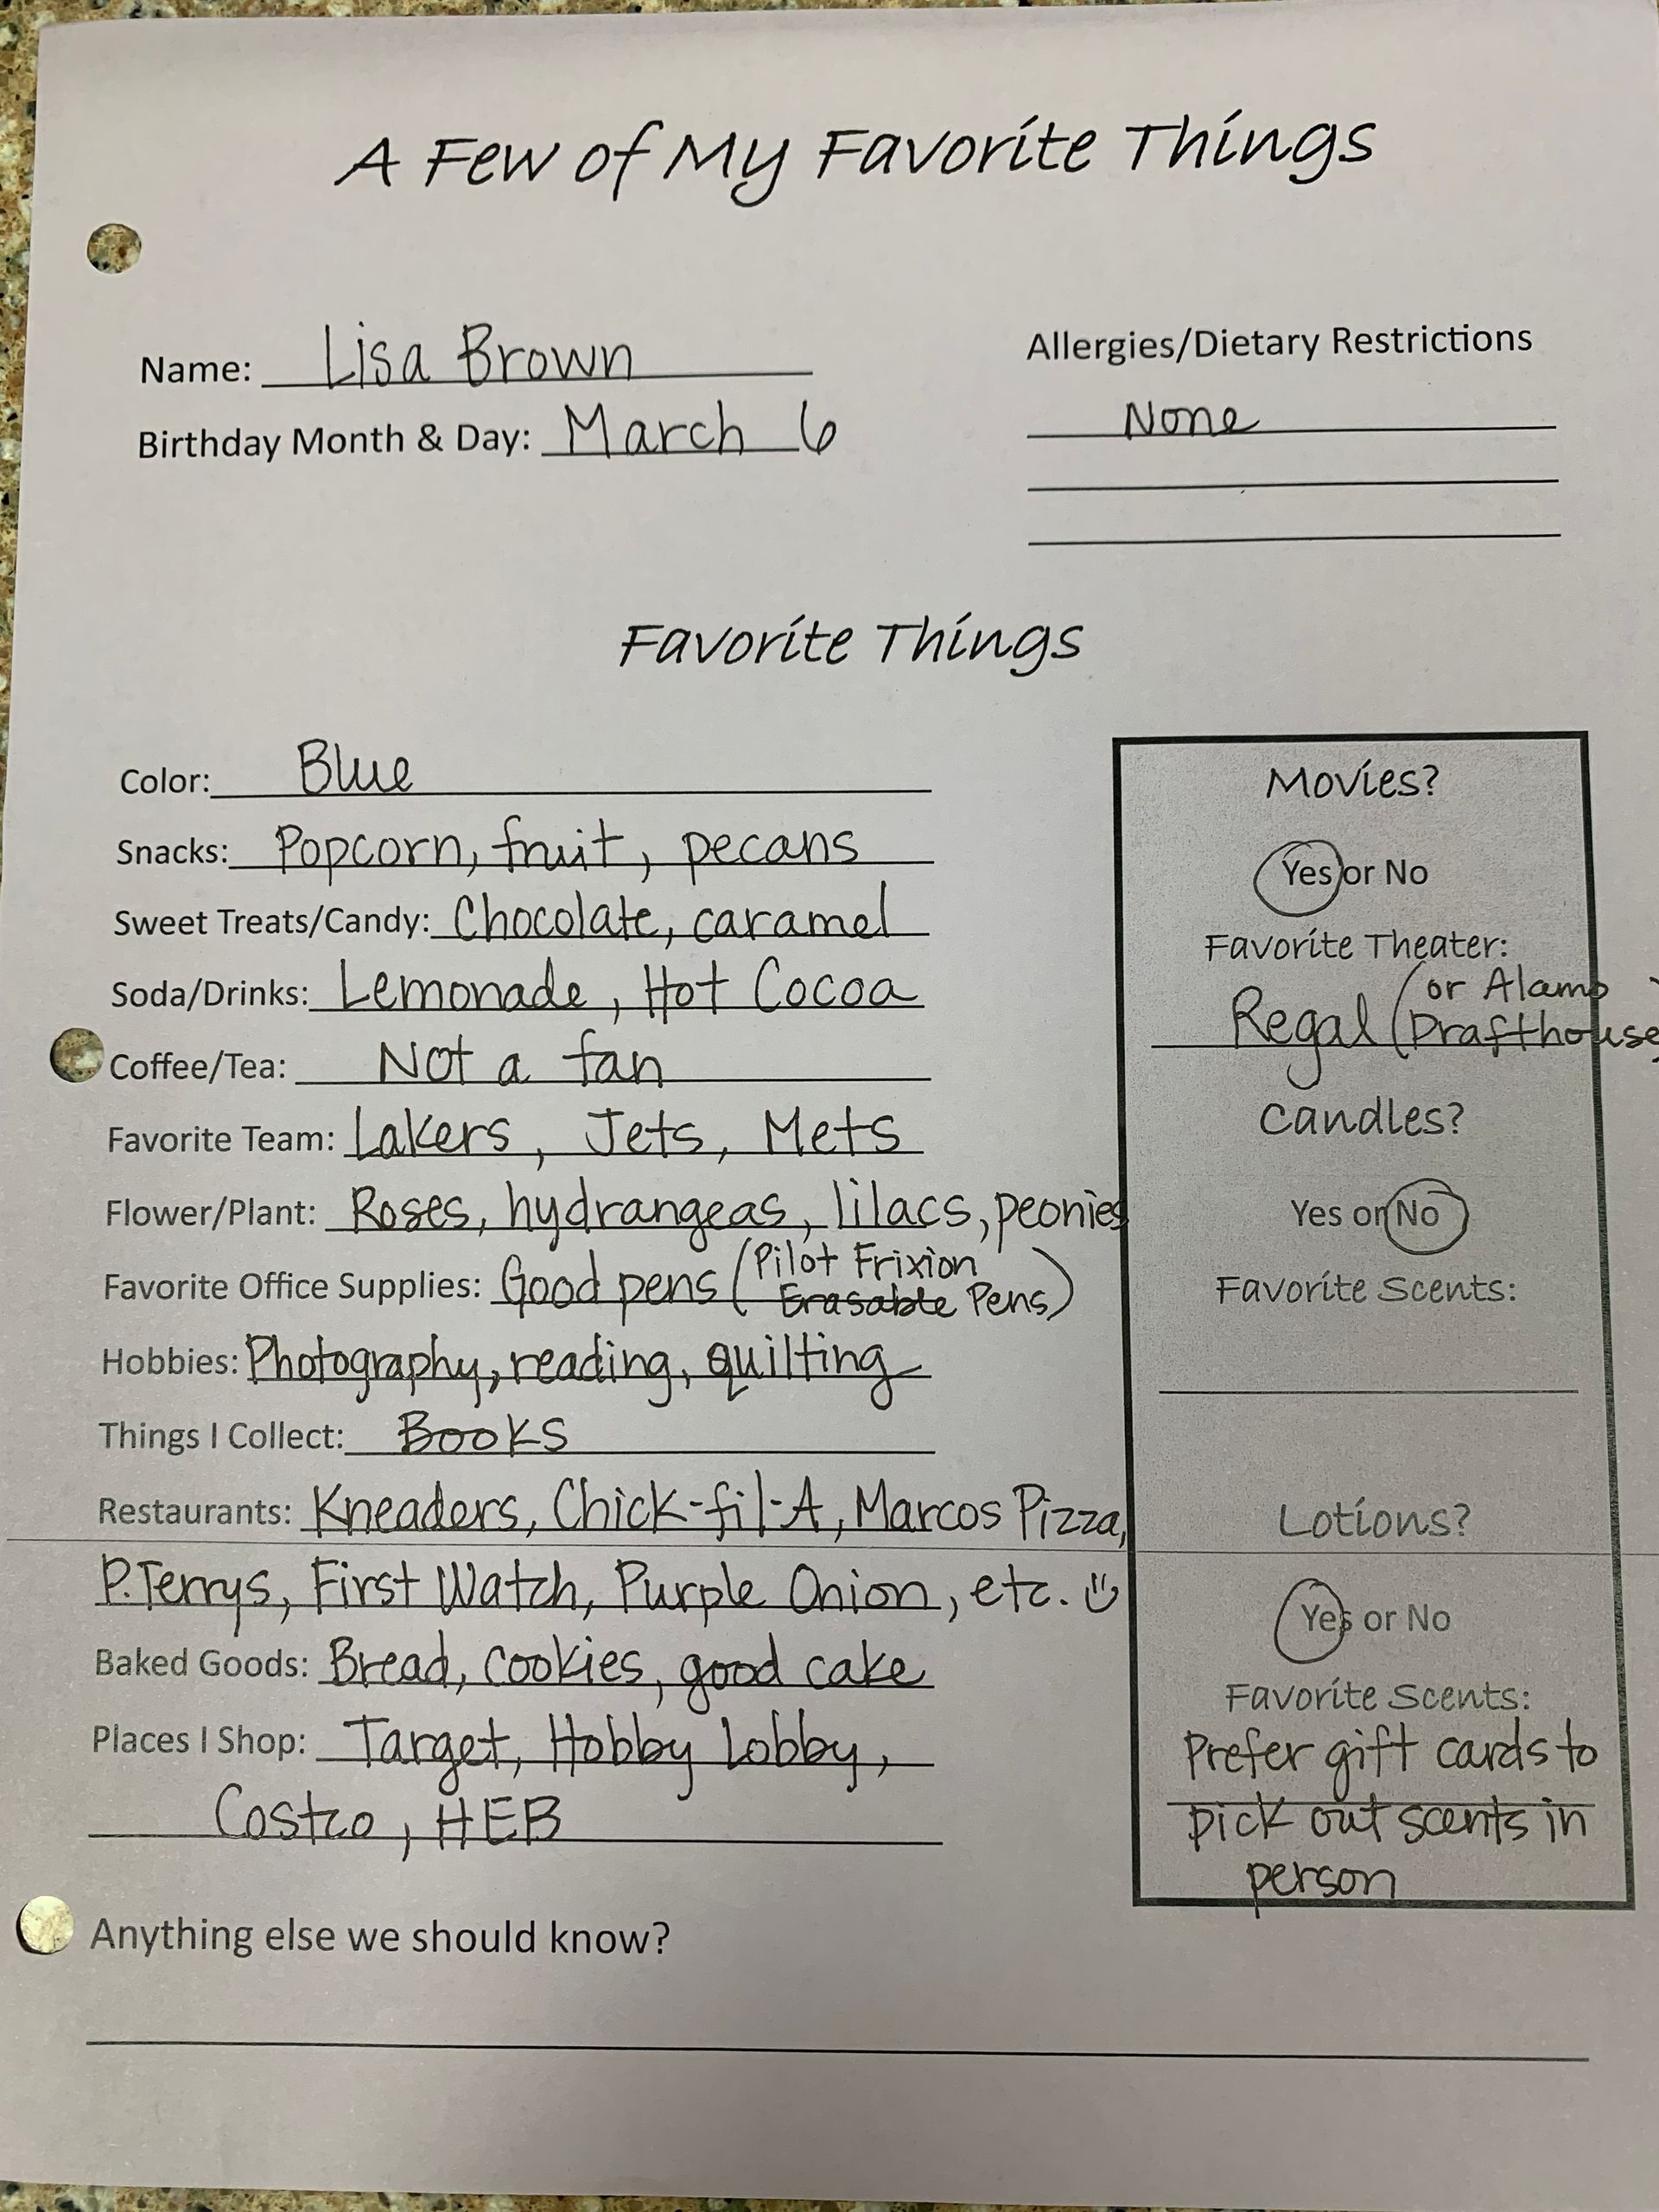 A Few of My Favorite Things
Name: Lisa Brown
Birthday Month & Day: March 6
Allergies/Dietary Restrictions
None
Favorite Things
Color: Blue
Snacks: Popcorn, fruit, pecans
Sweet Treats/Candy: Chocolate, caramel
Soda/Drinks: Lemonade, Hot Cocoa
Coffee/Tea: Not a fan
Favorite Team: Lakers, Jets, Mets
Flower/Plant: Roses, hydrangeas, lilacs, peonies
Favorite Office Supplies: Good pens (Pilot Frixion
Erasable Pens)
Hobbies: Photography, reading, quilting
Things I Collect: Books
Restaurants: Kneaders, Chick-fil-A, Marcos Pizza,
P. Terrys, First Watch, Purple Onion, etc.
Baked Goods: Bread, cookies, good cake
Places I Shop: Target, Hobby Lobby,
Costco, HEB
Movies?
Yes or No
Favorite Theater:
Regal (or Alamo
Drafthouse)
Candles?
Yes or No
Favorite Scents:
Lotions?
Yes or No
Favorite Scents:
Prefer gift cards to
pick out scents in
person
Anything else we should know?